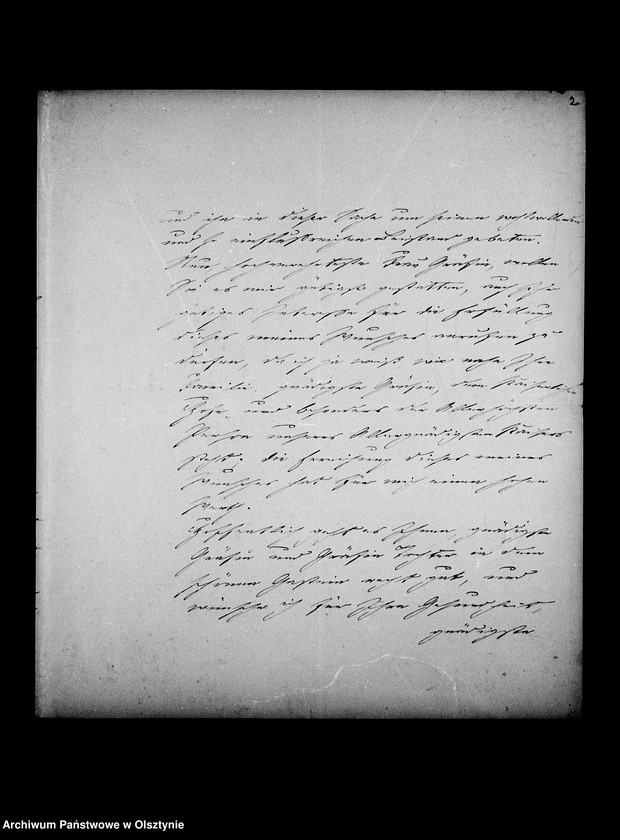 2
und ihn in dieser Sache um seinen wohlwollenden
und so einflußreichen Beistand gebeten.
Nun, hochverehrteste Frau Gräfin, wollen
Sie es mir gütigst gestatten, auch Ihr
gütiges Interesse für die Erfüllung
dieses meines Wunsches anrufen zu
dürfen, da ich ja weiß wie nahe Ihre
Familie, gnädigste Gräfin, dem Kaiserlichen
Hofe und besonders der Allerhöchsten
Person unseres Allergnädigsten Kaisers
steht; die Erreichung dieses meines
Wunsches hat für mich einen hohen
Werth.
Hoffentlich geht es Ihnen, gnädigste
Gräfin und Gräfin Tochter in dem
schönen Gastein recht gut, und
wünsche ich für Ihre Gesundheit,
gnädigste
Archiwum Państwowe w Olsztynie